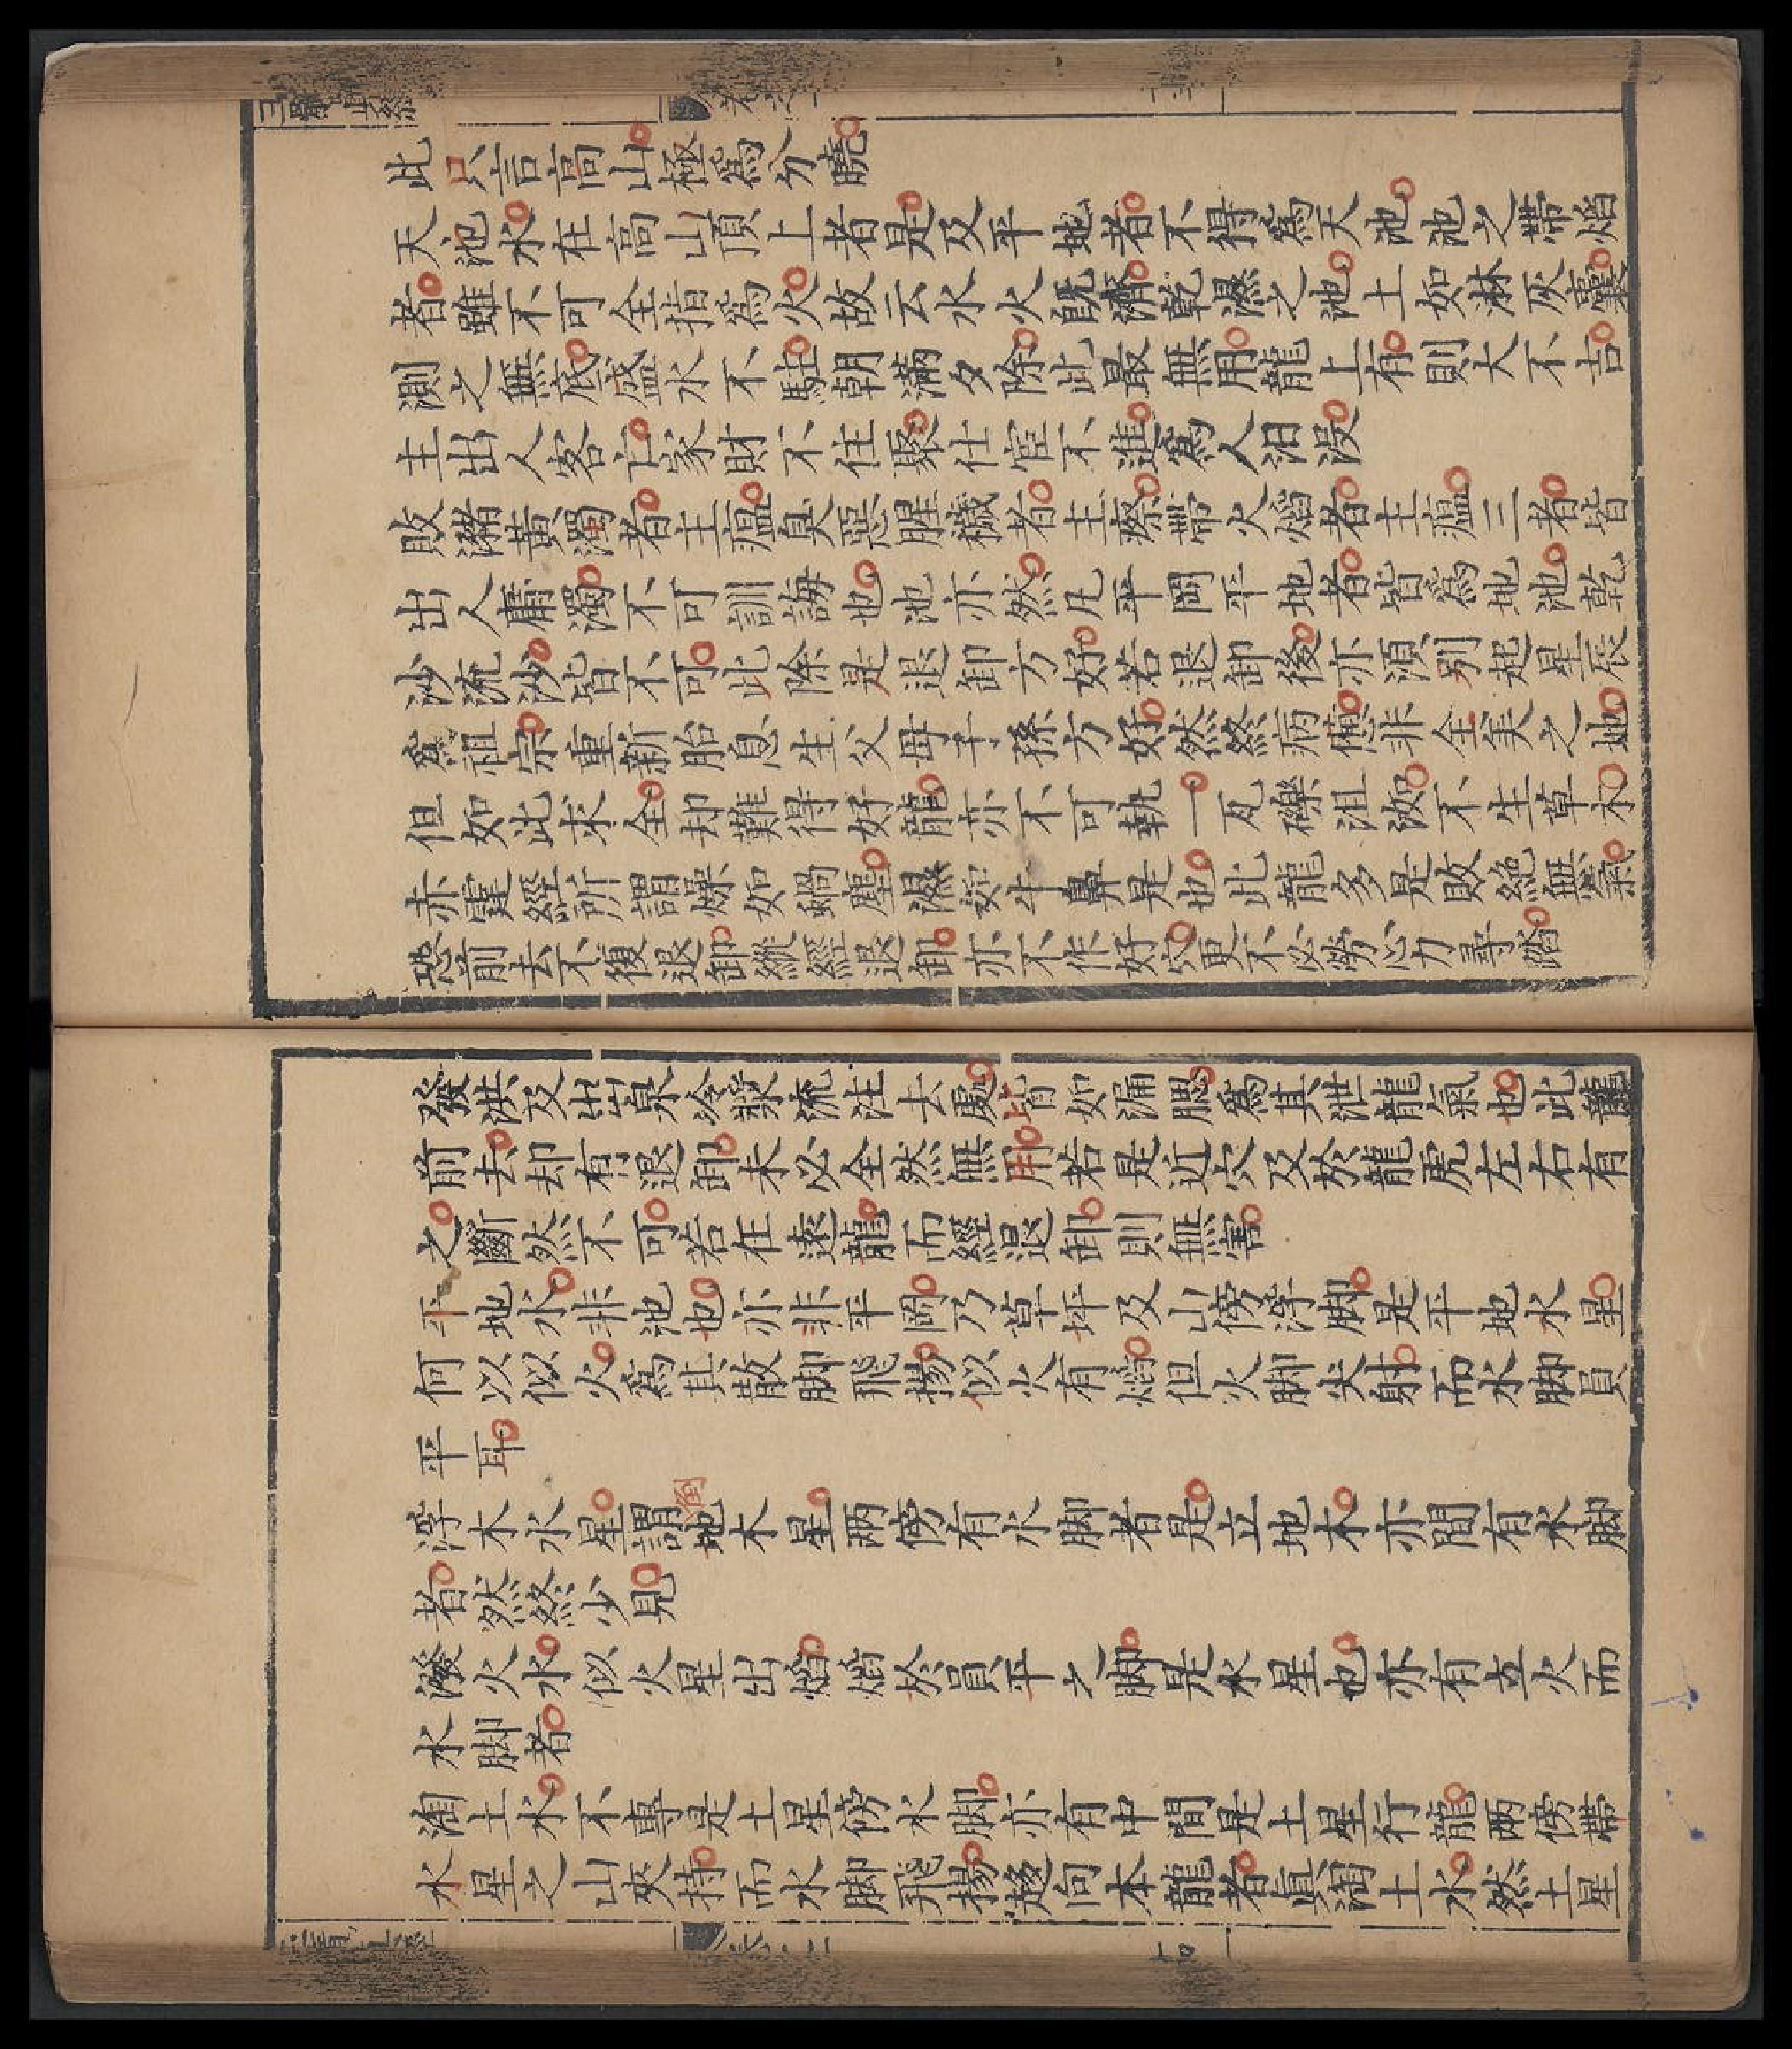 此只言高山極爲分曉
天池水在高山頂上者是及平地者不得爲天池池之帶焰
者雖不可全指爲火故云水火旣濟乾濕之池土如淋灰囊
測之無底盛水不駐朝滿夕除此最無用龍上有則大不吉
主出人客亡家財不住聚仕宦不進爲人汨沒
敗潴黃濁者主瘟臭惡腥穢者主瘵帶火焰者主瘟三者皆
出人庸濁不可訓誨也池亦然凡平岡平地者皆爲地池乾
沙流沙皆不可此除是退卸方好若退卸後亦須別起星辰
爲祖宗重新胎息生父母子孫方好然終病憊非全美之地
但如此求全却難得好龍亦不可執一瓦礫沮洳不生草木
赤霆經所謂燥如蝸塵濕如牛鼻是也此龍多是敗絕無氣
恐前去不復退卸縱經退卸亦不作好穴更不必勞心力尋踏
發洪及出泉冷漿流注去處皆如漏腮爲其泄龍氣也此龍
前去却有退卸未必全然無用若是近穴及於龍虎左右有
之斷然不可若在遠龍而經退卸則無害
平地水非池也亦非平岡乃草坪及山傍浮脚是平地水星
何以似火爲其散脚飛揚似火有焰但火脚尖射而水脚員
平耳
浮木水星謂倒地木星兩傍有水脚者是立地木亦間有水脚
者然終少見
潑火水似火星出焰焰於員平之脚是水星也亦有立火而
水脚者
淘土水不專是土星傍水脚亦有中間是土星行龍兩傍帶
水星之山夾持而水脚飛揚趍向本龍者眞淘土水然土星